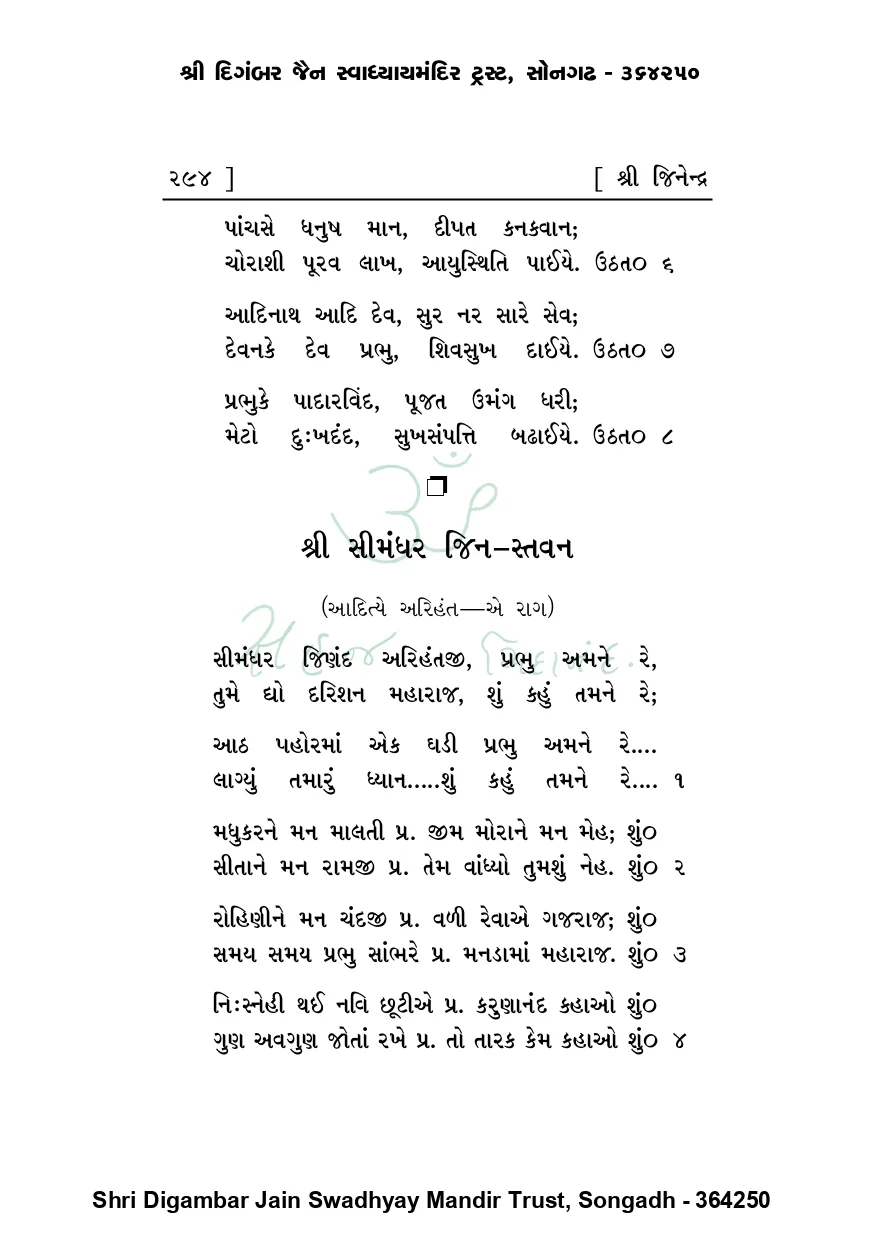 શ્રી દિગંબર જૈન સ્વાધ્યાયમંદિર ટ્રસ્ટ, સોનગઢ - ૩૬૪૨૫૦
૨૯૪ ] [ શ્રી જિનેન્દ્ર
પાંચસે ધનુષ માન, દીપત કનકવાન;
ચોરાશી પૂરવ લાખ, આયુસ્થિતિ પાઈયે. ઉઠત૦ ૬
આદિનાથ આદિ દેવ, સુર નર સારે સેવ;
દેવનકે દેવ પ્રભુ, શિવસુખ દાઈયે. ઉઠત૦ ૭
પ્રભુકે પાદારવિંદ, પૂજત ઉમંગ ધરી;
મેટો દુઃખદંદ, સુખસંપત્તિ બઢાઈયે. ઉઠત૦ ૮
ૐ
શ્રી સીમંધર જિન-સ્તવન
(આદિત્યે અરિહંત—એ રાગ)
સહજ ચિદાનંદ.
સીમંધર જિણંદ અરિહંતજી, પ્રભુ અમને રે,
તુમે દ્યો દરિશન મહારાજ, શું કહું તમને રે;
આઠ પહોરમાં એક ઘડી પ્રભુ અમને રે....
લાગ્યું તમારું ધ્યાન.....શું કહું તમને રે.... ૧
મધુકરને મન માલતી પ્ર. જીમ મોરાને મન મેહ; શું૦
સીતાને મન રામજી પ્ર. તેમ વાંધ્યો તુમશું નેહ. શું૦ ૨
રોહિણીને મન ચંદજી પ્ર. વળી રેવાએ ગજરાજ; શું૦
સમય સમય પ્રભુ સાંભરે પ્ર. મનડામાં મહારાજ. શું૦ ૩
નિઃસ્નેહી થઈ નવિ છૂટીએ પ્ર. કરુણાનંદ કહાઓ શું૦
ગુણ અવગુણ જોતાં રખે પ્ર. તો તારક કેમ કહાઓ શું૦ ૪
Shri Digambar Jain Swadhyay Mandir Trust, Songadh - 364250